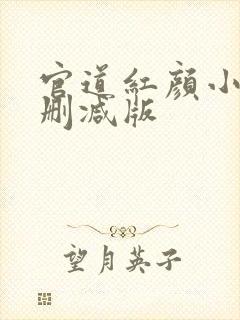 官道紅顏小
刪減版
望月英子